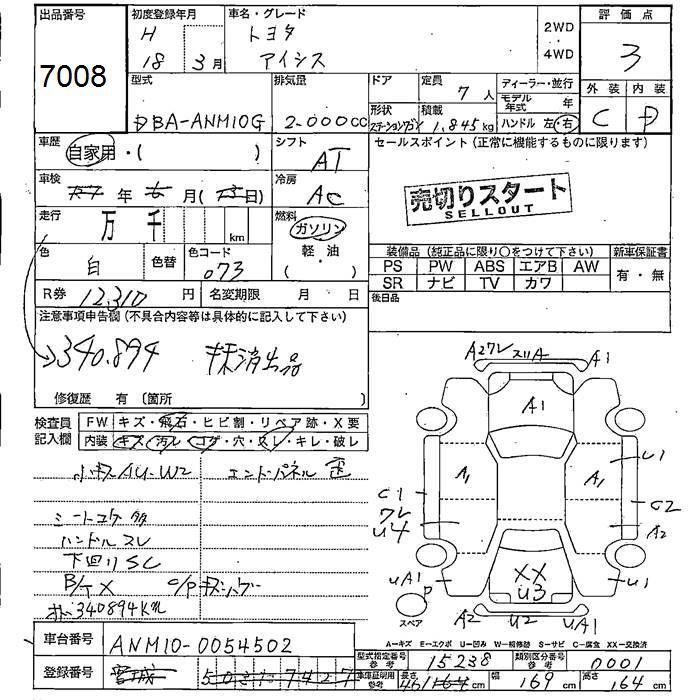 出品番号
7008
初度登録年月
H
18 3月
車名・グレード
トヨタ
アイシス
2WD
・
4WD
評価点
3
外装 内装
C D
型式
DBA-ANM10G
排気量
2000cc
ドア
形状
ステーションワゴン
定員
7人
積載
1,845kg
ディーラー・並行
モデル年式 年
ハンドル 左・右
車歴
自家用・( )
シフト
AT
セールスポイント(正常に機能するものに限ります)
売切りスタート
SELLOUT
車検
年 6月(13日)
冷房
AC
走行
万 千 km
燃料
ガソリン
軽・油
( ・ )
色
白
色替
色コード
073
装備品(純正品に限り○をつけて下さい)
新車保証書
PS PW ABS エアB AW
SR ナビ TV カワ
有・無
R券 12,310円
名変期限 月 日
後日品
注意事項申告欄(不具合内容等は具体的に記入して下さい)
340.894 抹消出品
修復歴 有(箇所
検査員
記入欄
FW キズ・飛石・ヒビ割・リペア跡・X要
内装 キズ・汚レ・コゲ・穴・スレ・キレ・破レ
小キズ AU-W2 エンドパネル 歪
シートコゲ 多
ハンドル スレ
下回り SC
B/T X
340894Km
A2 ワレ スリA A1
A1
A1 A1
U1
C1
ワレ
U4
C2
A2
UA1
P
XX
U3
U1
スペア
A2 U2 UA1
A=キズ E=エクボ U=凹み W=補修跡 S=サビ C=腐食 XX=交換済
車台番号 ANM10-0054502
型式指定番号 参考 15238
類別区分番号 参考 0001
登録番号 宮城 503 7427
車庫証明用 参考 長さ 461cm 幅 169cm 高さ 164cm